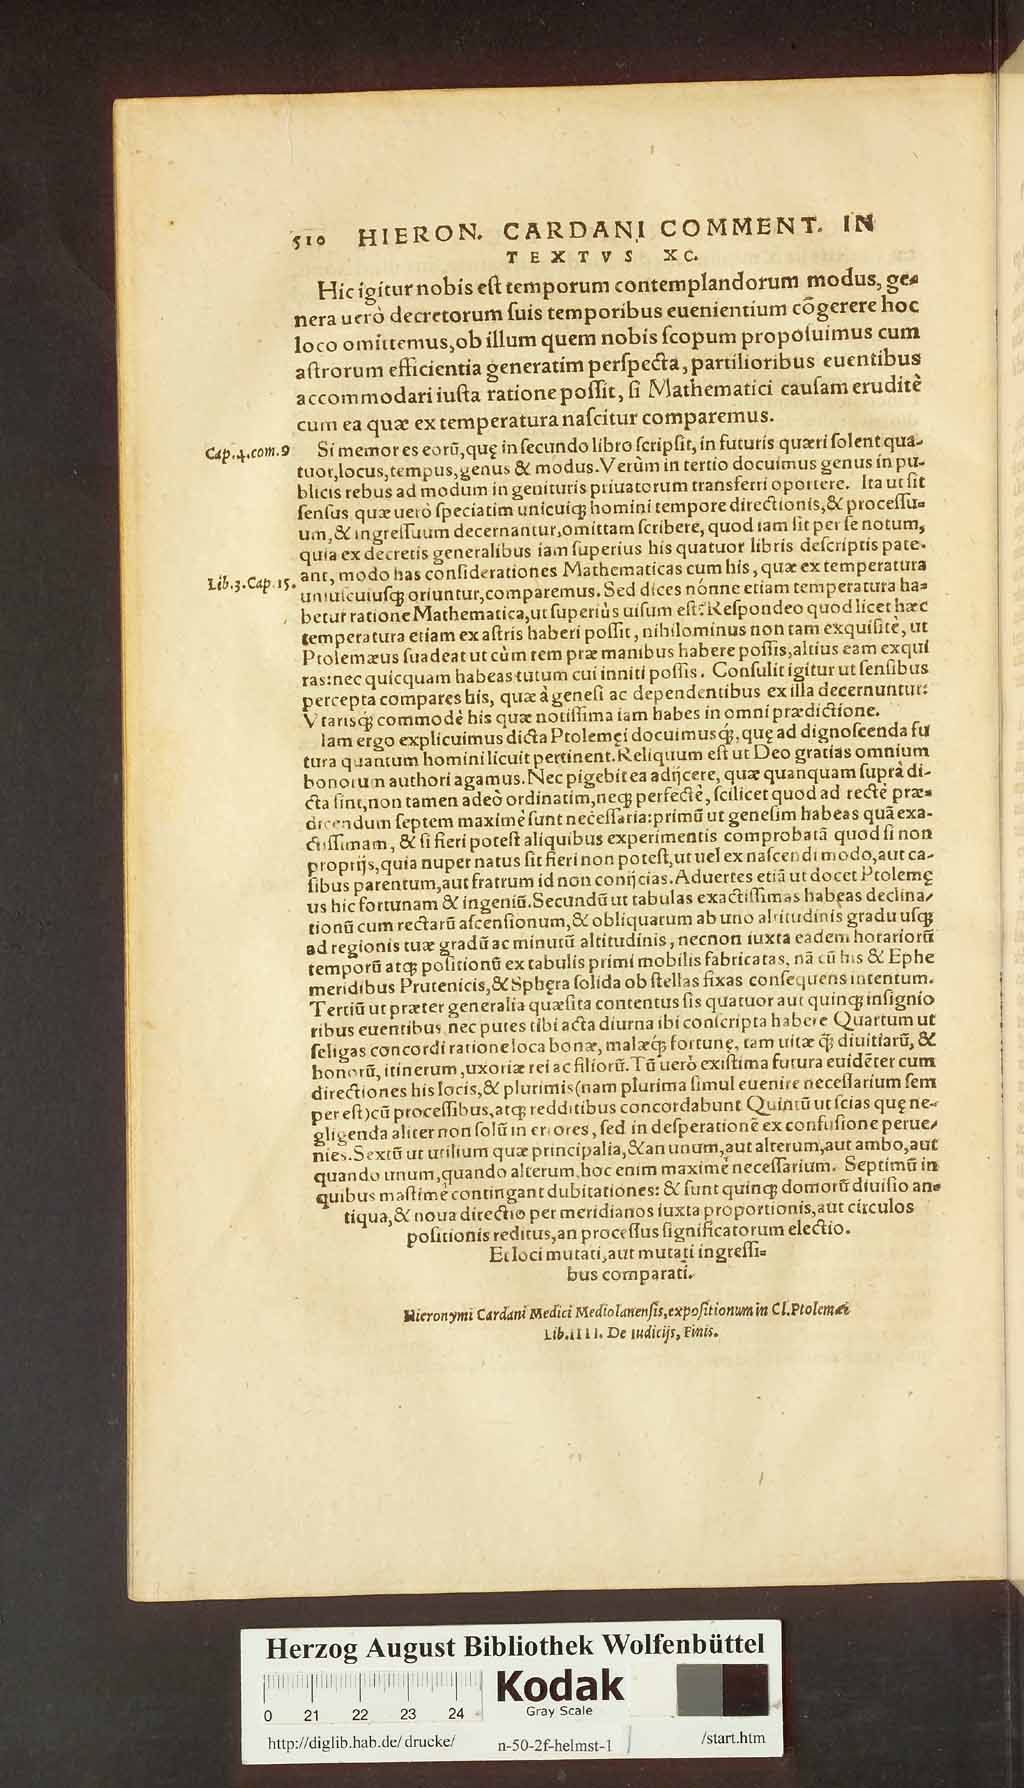 510 HIERON. CARDANI COMMENT. IN
TEXTVS XC.
Hic igitur nobis eſt temporum contemplandorum modus, ge-
nera uerò decretorum ſuis temporibus euenientium cõgerere hoc
loco omittemus, ob illum quem nobis ſcopum propoſuimus cum
aſtrorum efficientia generatim perſpecta, partilioribus euentibus
accommodari iuſta ratione poſſit, ſi Mathematici cauſam eruditè
cum ea quæ ex temperatura naſcitur comparemus.
Cap.4.com.9
Si memor es eorũ, quę in ſecundo libro ſcripſit, in futuris quæri ſolent qua-
tuor, locus, tempus, genus & modus. Verùm in tertio docuimus genus in pu-
blicis rebus ad modum in genituris priuatorum transferri oportere. Ita ut ſit
ſenſus quæ uerò ſpeciatim unicuiq; homini tempore directionis, & proceſſu-
um, & ingreſſuum decernantur, omittam ſcribere, quod iam ſit per ſe notum,
quia ex decretis generalibus iam ſuperius his quatuor libris deſcriptis pate-
Lib.3.Cap.15.
ant, modo has conſiderationes Mathematicas cum his, quæ ex temperatura
uniuſcuiuſq; oriuntur, comparemus. Sed dices nónne etiam temperatura ha-
betur ratione Mathematica, ut ſuperiùs uiſum eſt? Reſpondeo quod licet hæc
temperatura etiam ex aſtris haberi poſſit, nihilominus non tam exquiſitè, ut
Ptolemæus ſuadeat ut cùm rem præ manibus habere poſſis, altius eam exqui
ras: nec quicquam habeas tutum cui inniti poſſis. Conſulit igitur ut ſenſibus
percepta compares his, quæ à geneſi ac dependentibus ex illa decernuntur:
Vtarisq; commodè his quæ notiſſima iam habes in omni prædictione.
Iam ergo explicuimus dicta Ptolemęi docuimusq;, quę ad dignoſcenda fu
tura quantum homini licuit pertinent. Reliquum eſt ut Deo gratias omnium
bonorum authori agamus. Nec pigebit ea adijcere, quæ quanquam ſuprà di-
cta ſint, non tamen adeò ordinatim, neq; perfectè, ſcilicet quod ad rectè præ-
dicendum ſeptem maximè ſunt neceſſaria: primũ ut geneſim habeas quã exa-
ctiſſimam, & ſi fieri poteſt aliquibus experimentis comprobatã quod ſi non
proprijs, quia nuper natus ſit fieri non poteſt, ut uel ex naſcendi modo, aut ca-
ſibus parentum, aut fratrum id non conijcias. Aduertes etiã ut docet Ptolemę
us hic fortunam & ingeniũ. Secundũ ut tabulas exactiſſimas habeas declina-
tionũ cum rectarũ aſcenſionum, & obliquarum ab uno altitudinis gradu uſq;
ad regionis tuæ gradũ ac minutũ altitudinis, necnon iuxta eadem horariorũ
temporũ atq; poſitionũ ex tabulis primi mobilis fabricatas, nã cũ his & Ephe
meridibus Prutenicis, & Sphęra ſolida ob ſtellas fixas conſequens intentum.
Tertiũ ut præter generalia quæſita contentus ſis quatuor aut quinq; inſignio
ribus euentibus nec putes tibi acta diurna ibi conſcripta habere Quartum ut
ſeligas concordi ratione loca bonæ, malæq; fortunę, tam uitæ q̃ diuitiarũ, &
honorũ, itinerum, uxoriæ rei ac filiorũ. Tũ uerò exiſtima futura euidẽter cum
directiones his locis, & plurimis (nam plurima ſimul euenire neceſſarium ſem
per eſt) cũ proceſſibus, atq; redditibus concordabunt Quintũ ut ſcias quę ne-
gligenda aliter non ſolũ in errores, ſed in deſperationẽ ex confuſione perue-
nies. Sextũ ut utilium quæ principalia, & an unum, aut alterum, aut ambo, aut
quando unum, quando alterum, hoc enim maximè neceſſarium. Septimũ in
quibus maſtimè contingant dubitationes: & ſunt quinq; domorũ diuiſio an-
tiqua, & noua directio per meridianos iuxta proportionis, aut circulos
poſitionis reditus, an proceſſus ſignificatorum electio.
Et loci mutati, aut mutati ingreſſi-
bus comparati.
Hieronymi Cardani Medici Mediolanenſis, expoſitionum in Cl. Ptolemæi
Lib. IIII. De Iudicijs, Finis.
Herzog August Bibliothek Wolfenbüttel
0 21 22 23 24
Kodak
Gray Scale
http://diglib.hab.de/drucke/ n-50-2f-helmst-1 /start.htm